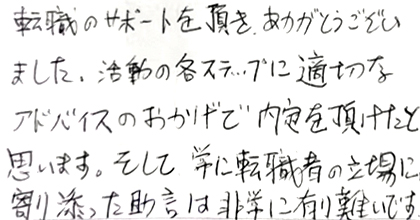 転職のサポートを頂き、ありがとうござい
ました。活動の各ステップに適切な
アドバイスのおかげで内定を頂けたと
思います。そして常に転職者の立場に
寄り添った助言は非常に有り難いです